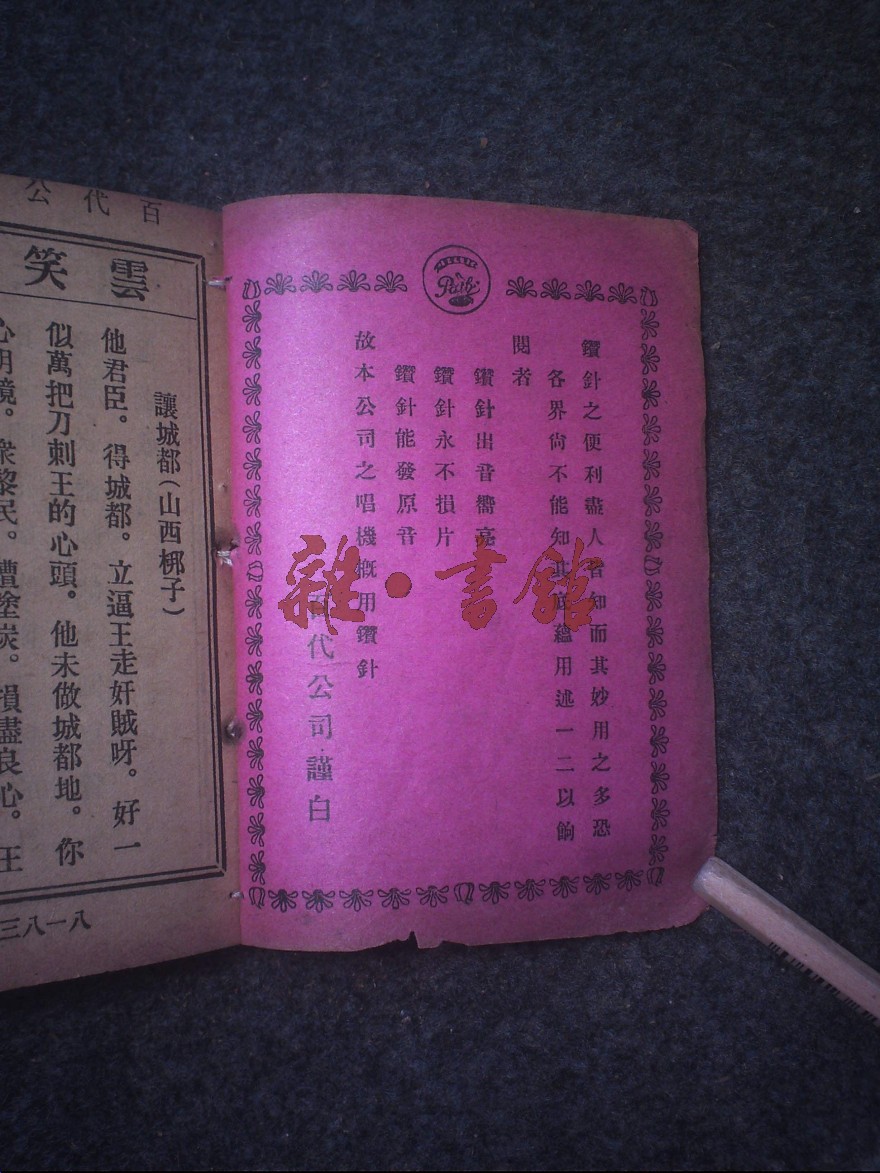 鑽針之便利盡人皆知而其妙用之多恐
各界尙不能知其底蘊用述一二以餉
閱者
鑽針出音嚮亮
鑽針永不損片
鑽針能發原音
故本公司之唱機槪用鑽針
百代公司謹白
Pathé
雜·書館
百代公
雲笑
讓城都(山西梆子)
他君臣。得城都。立逼王走奸賊呀。好一
似萬把刀刺王的心頭。他未做城都地。你
心明鏡。衆黎民。遭塗炭。損盡良心。王
三八一八